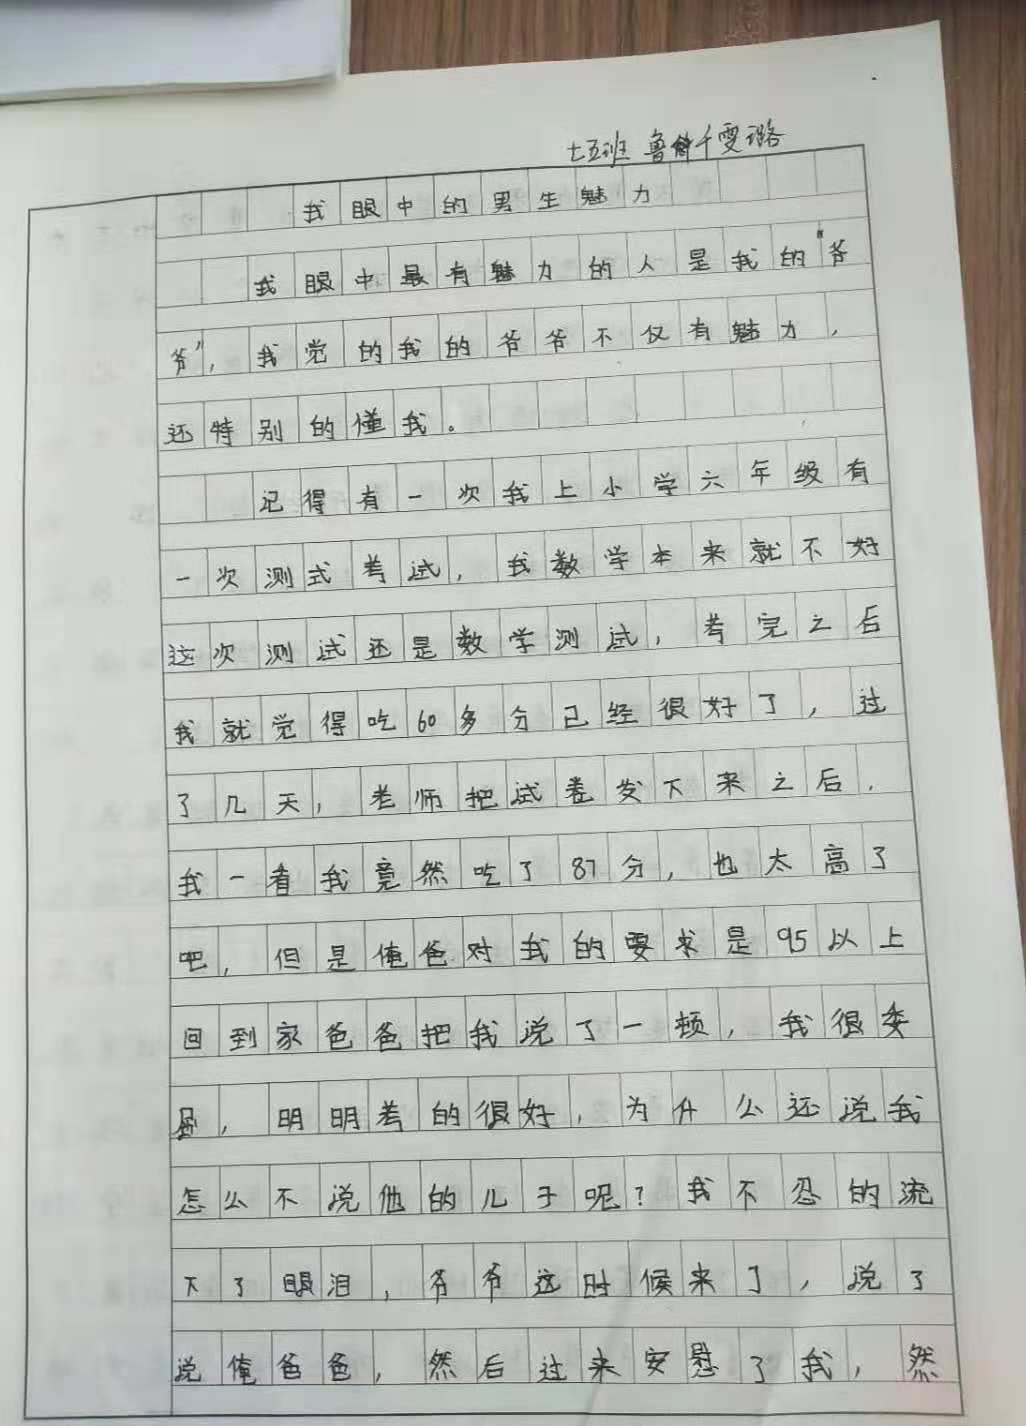 七五班 鲁千雯璐
我眼中的男生魅力
我眼中最有魅力的人是我的“爷
爷”,我觉的我的爷爷不仅有魅力,
还特别的懂我。
记得有一次我上小学六年级有
一次测式考试,我数学本来就不好
这次测试还是数学测试,考完之后
我就觉得吃60多分已经很好了,过
了几天,老师把试卷发下来之后,
我一看我竟然吃了87分,也太高了
吧,但是俺爸对我的要求是95以上
回到家爸爸把我说了一顿,我很委
屈,明明考的很好,为什么还说我
怎么不说他的儿子呢?我不忍的流
下了眼泪,爷爷这时候来了,说了
说俺爸爸,然后过来安慰了我,然